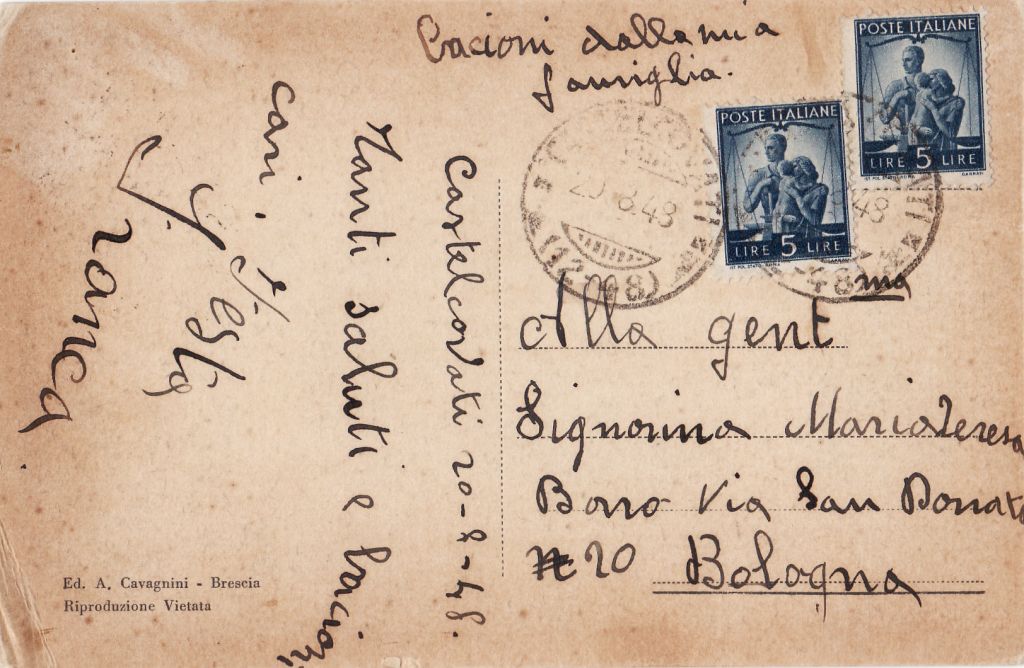 Bacioni dalla mia
famiglia.
POSTE ITALIANE
LIRE 5 LIRE
POSTE ITALIANE
LIRE 5 LIRE
20 8.48
Castelcovati 20-8-48.
Tanti saluti e bacioni
cari.
Franca
Alla gent ma
Signorina Maria Teresa
Borro Via San Donato
N 20 Bologna
Ed. A. Cavagnini - Brescia
Riproduzione Vietata